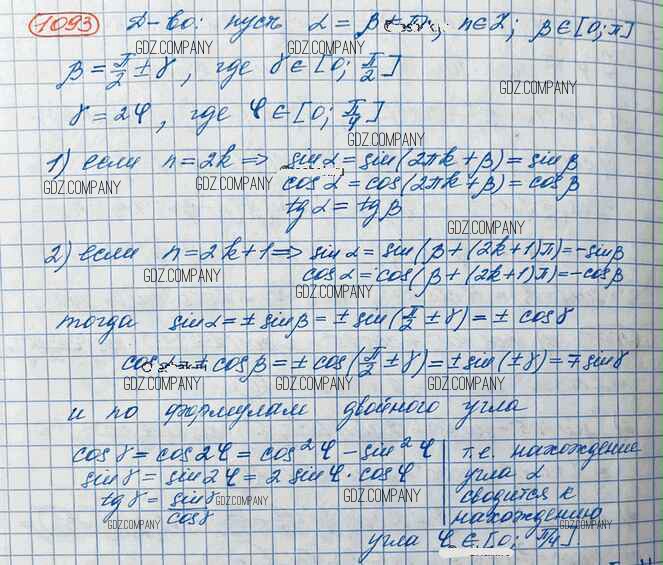 1093 Д-во: пусть α = β + πn, n∈Z; β∈[0;π]
GDZ.COMPANY GDZ.COMPANY
β = π/2 ± γ, где γ∈[0; π/2]
GDZ.COMPANY GDZ.COMPANY
γ = 2φ, где φ∈[0; π/4]
GDZ.COMPANY
1) если n=2k ⇒ sin α = sin(2πk+β) = sin β
GDZ.COMPANY GDZ.COMPANY GDZ.COMPANY
cos α = cos(2πk+β) = cos β
tg α = tg β
GDZ.COMPANY
2) если n=2k+1 ⇒ sin α = sin(β+(2k+1)π) = -sin β
GDZ.COMPANY
cos α = cos(β+(2k+1)π) = -cos β
GDZ.COMPANY
тогда sin α = ± sin β = ± sin(π/2 ± γ) = ± cos γ
cos α = ± cos β = ± cos(π/2 ± γ) = ± sin(±γ) = ∓ sin γ
GDZ.COMPANY GDZ.COMPANY GDZ.COMPANY
и по формулам двойного угла
cos γ = cos 2φ = cos²φ - sin²φ
sin γ = sin 2φ = 2 sin φ · cos φ
tg γ = sin γ / cos γ
GDZ.COMPANY GDZ.COMPANY
GDZ.COMPANY GDZ.COMPANY
т.е. нахождение
угла α
сводится к
нахождению
угла φ∈[0; π/4]